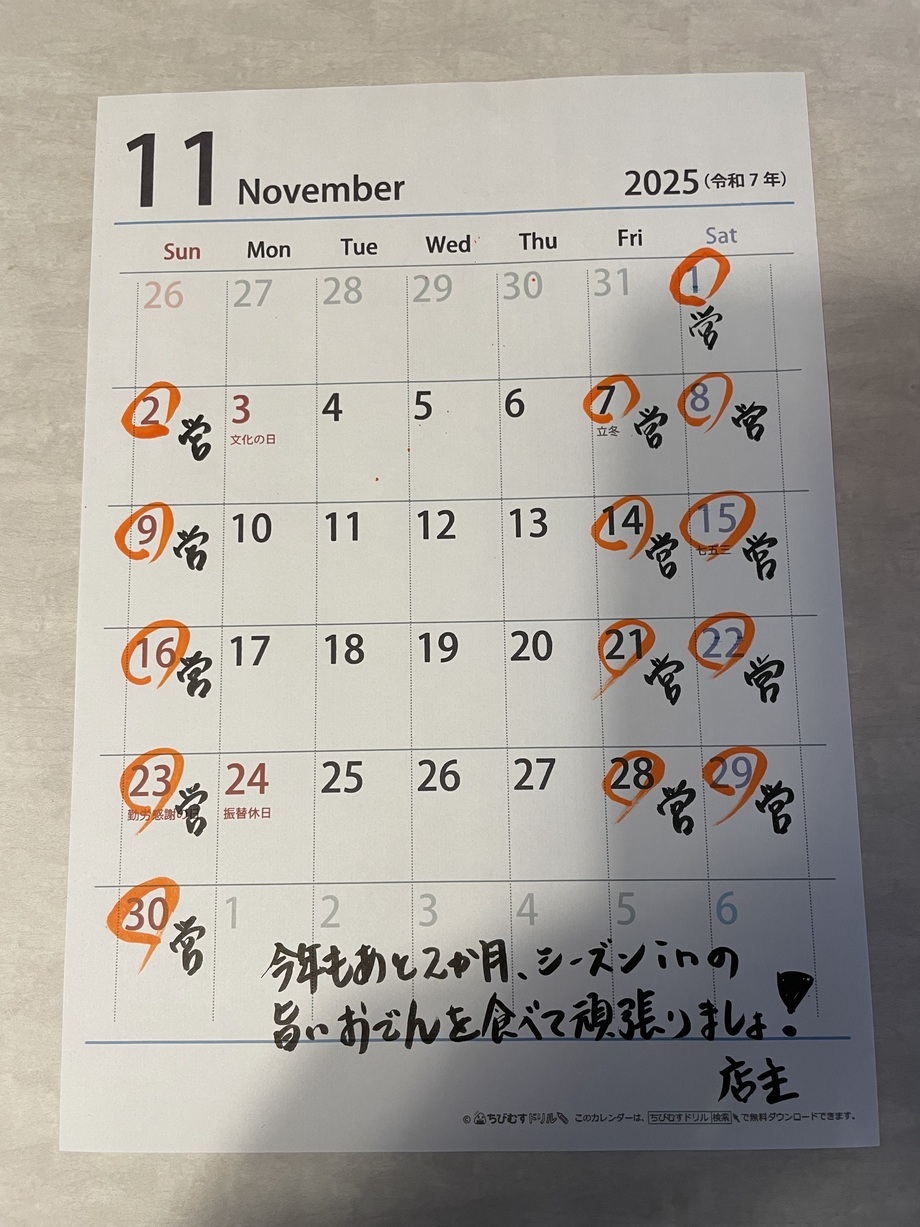 11 November 2025 (令和7年)
Sun Mon Tue Wed Thu Fri Sat
26 27 28 29 30 31 1
営
2 3 4 5 6 7 8
文化の日 立冬
営 営 営
9 10 11 12 13 14 15
七五三
営 営 営
16 17 18 19 20 21 22
営 営 営
23 24 25 26 27 28 29
勤労感謝の日 振替休日
営 営 営
30 1 2 3 4 5 6
営
今年もあと2か月、シーズンinの
旨いおでんを食べて頑張りましょ!
店主
© ちびむすドリル このカレンダーは、ちびむすドリル 検索 で無料ダウンロードできます。